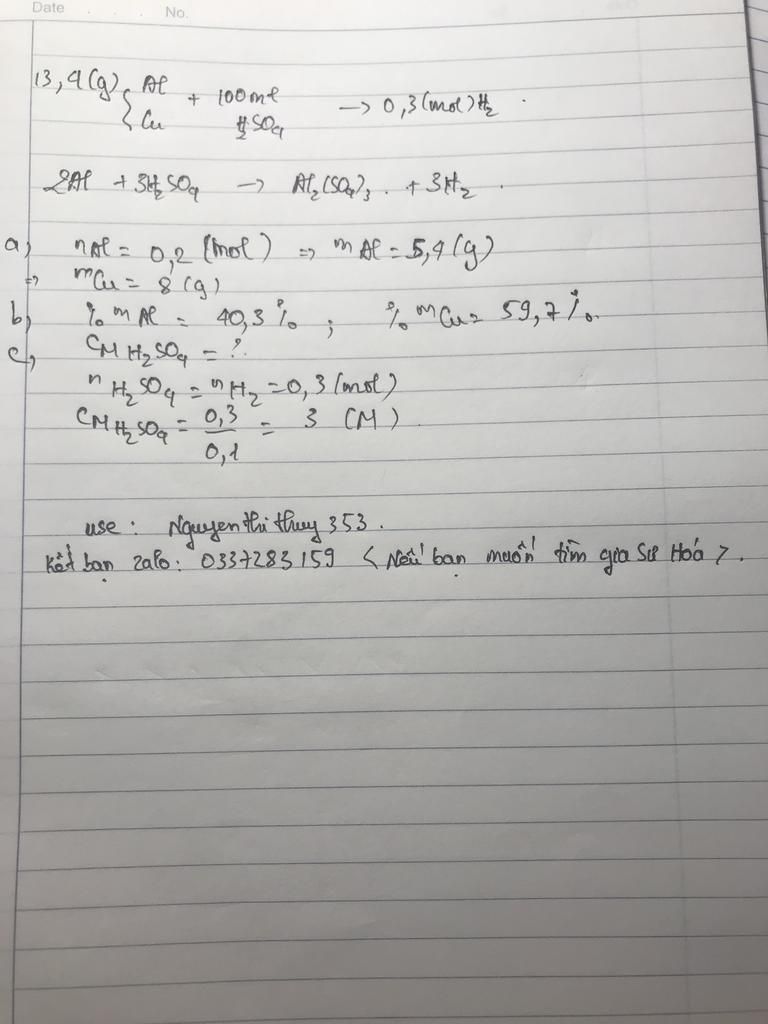 Date . . . No.
13,4(g) { Al + 100ml → 0,3(mol) H₂ .
Cu H₂SO₄
2Al + 3H₂SO₄ → Al₂(SO₄)₃ . + 3H₂ .
a, nAl = 0,2 (mol) => mAl = 5,4(g)
=> mCu = 8 (g)
b, % mAl = 40,3% ; % mCu = 59,7%.
c, CM H₂SO₄ = ?
nH₂SO₄ = nH₂ = 0,3(mol)
CM H₂SO₄ = 0,3/0,1 = 3 (M)
use : Nguyen thi thuy 353.
Kết bạn zalo: 0337283159 < Nếu bạn muốn tìm gia sư Hoá >.